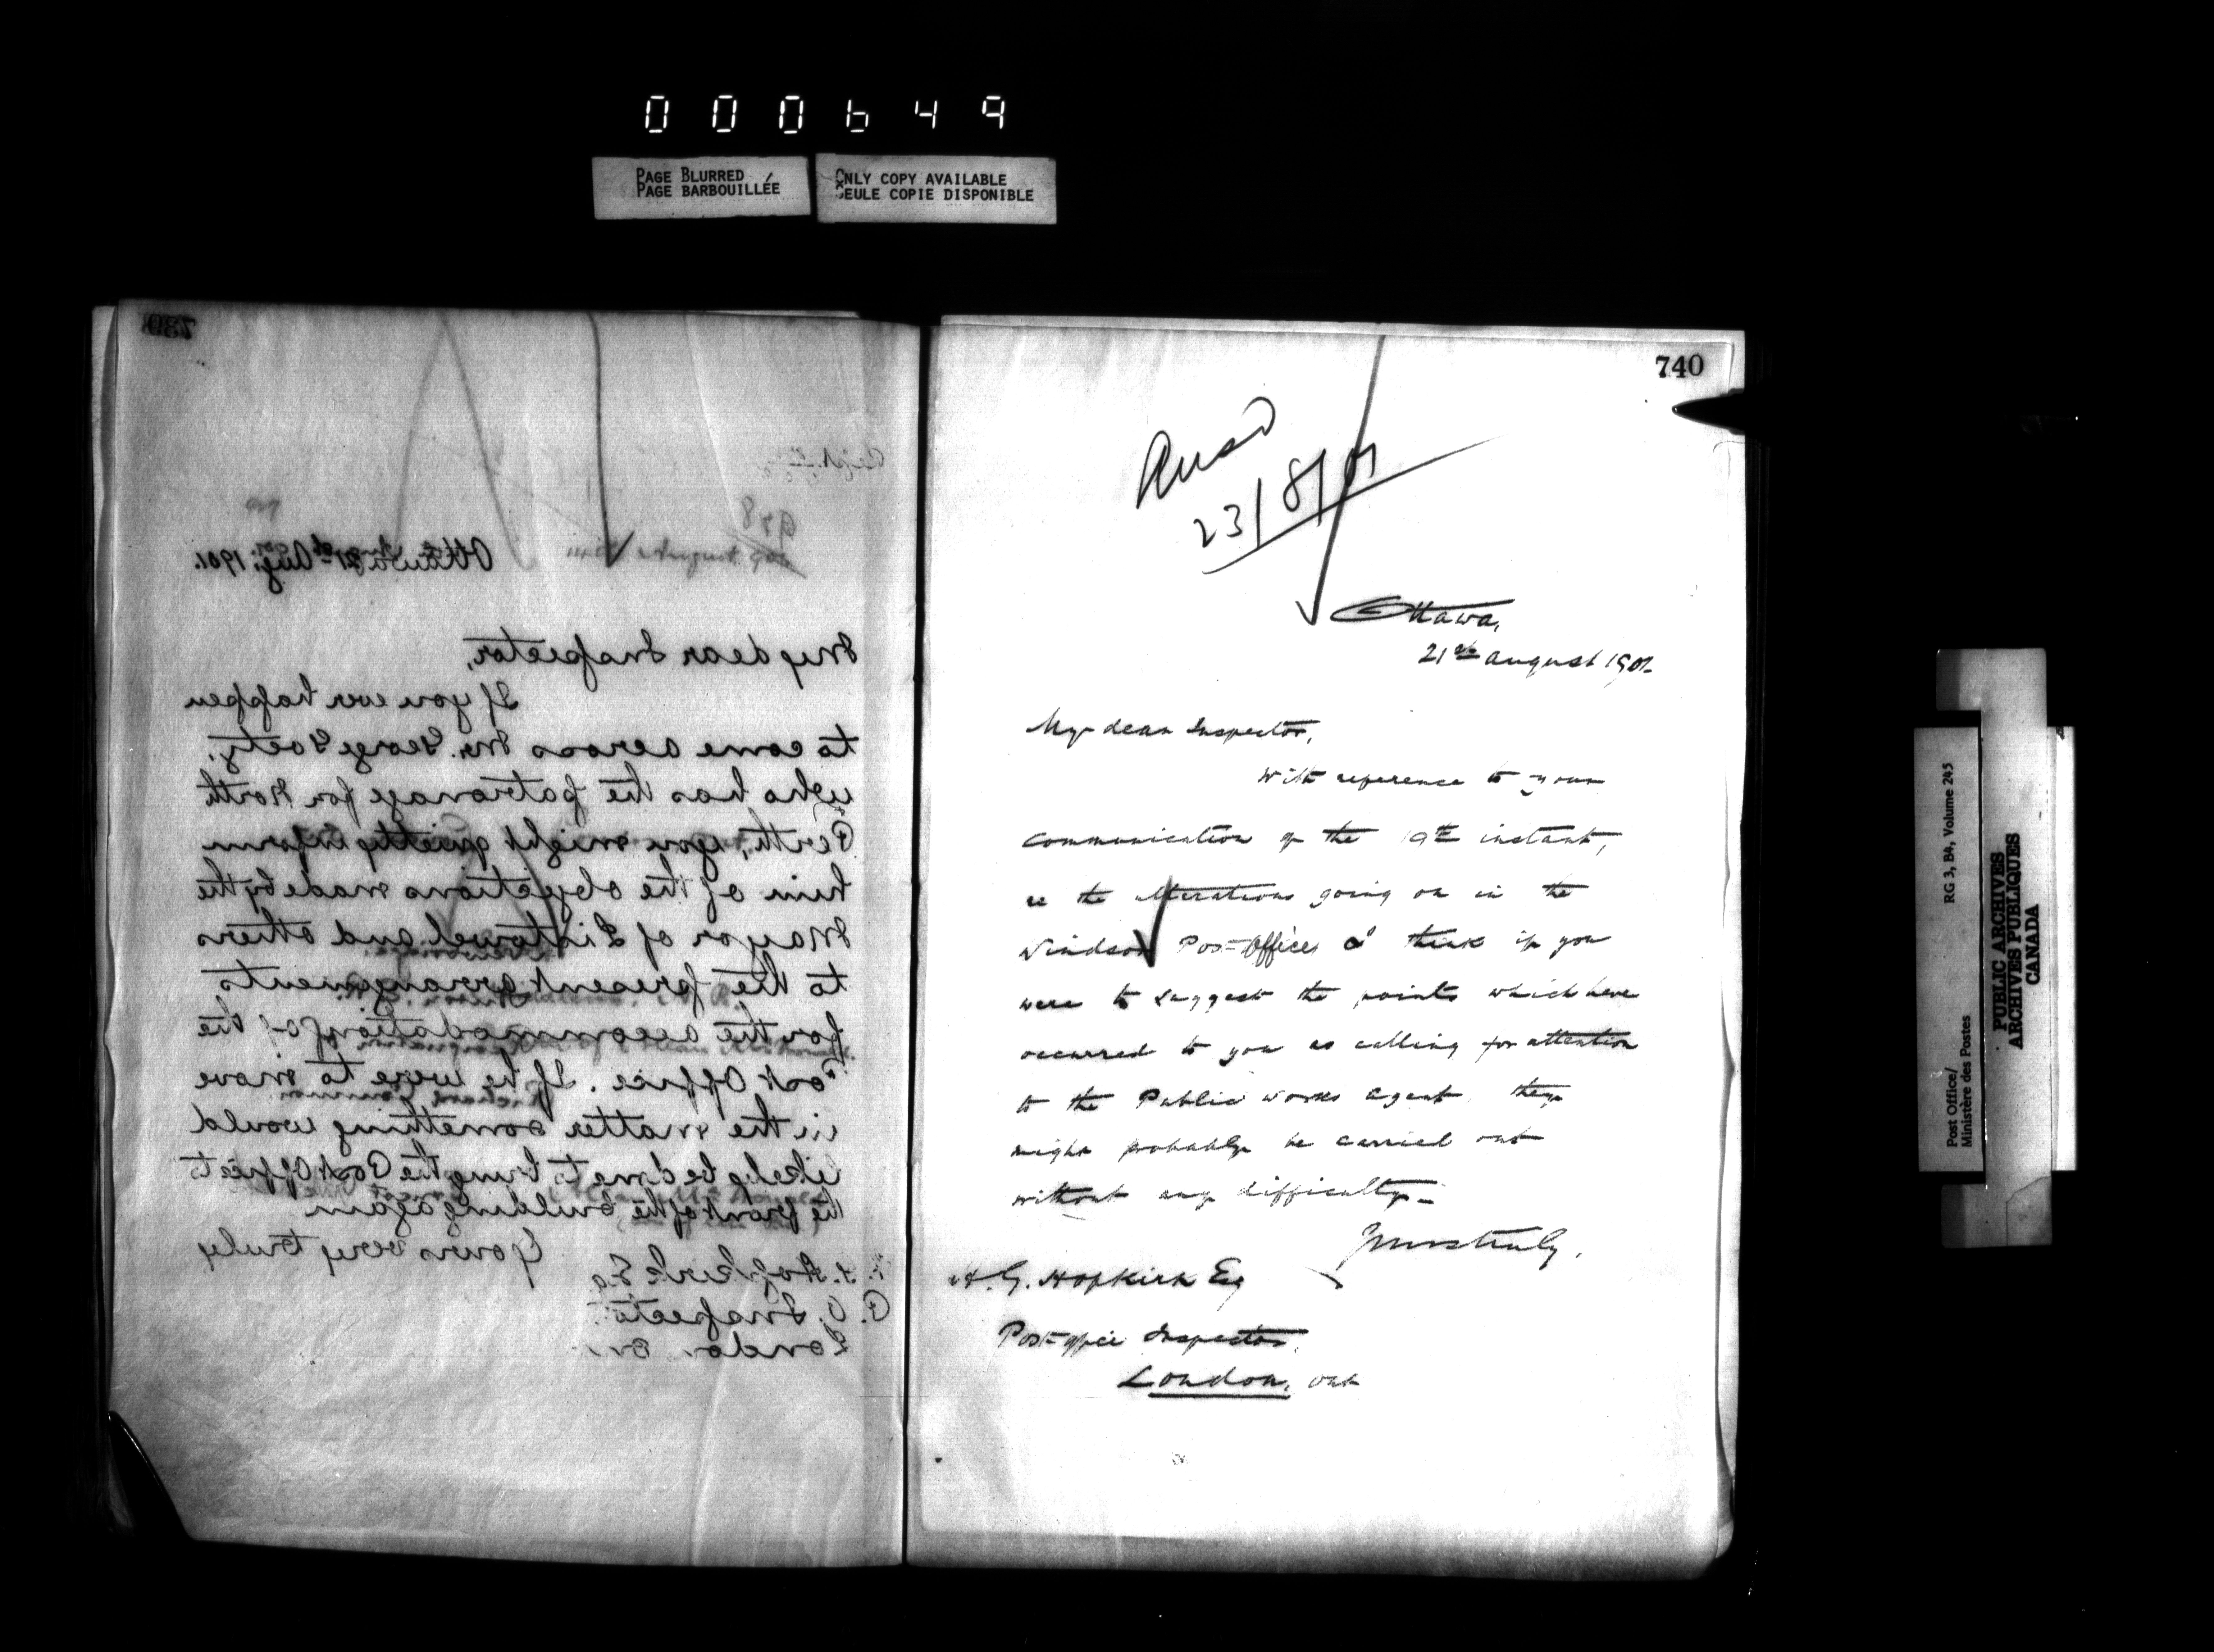 000649
PAGE BLURRED
PAGE BARBOUILLÉE
ONLY COPY AVAILABLE
SEULE COPIE DISPONIBLE
739
Ottawa 21st Aug. 1901.
My dear Inspector,
If you ever happen
to come across Mr. George Goetz,
who has the patronage for North
Perth, you might quietly inform
him of the objections made by the
Mayor of Listowel and others
to the present arrangements
for the accommodation of the
Post Office. If he were to move
in the matter something would
likely be done to bring the Post Office to
the front of the building again
Yours very truly
Hopkirk Esq
P. O. Inspector
London
740
Ansd
23/8/01
Ottawa,
21st August 1901.
My dear Inspector,
With reference to your
communication of the 19th instant,
re the alterations going on in the
Windsor Post Office, I think if you
were to suggest the points which have
occurred to you as calling for attention
to the Public Works Agent, they
might probably be carried out
without any difficulty.
Yours truly,
H. G. Hopkirk Esq
Post Office Inspector,
London, Ont
Post Office/
Ministère des Postes
RG 3, B4, Volume 245
PUBLIC ARCHIVES
ARCHIVES PUBLIQUES
CANADA